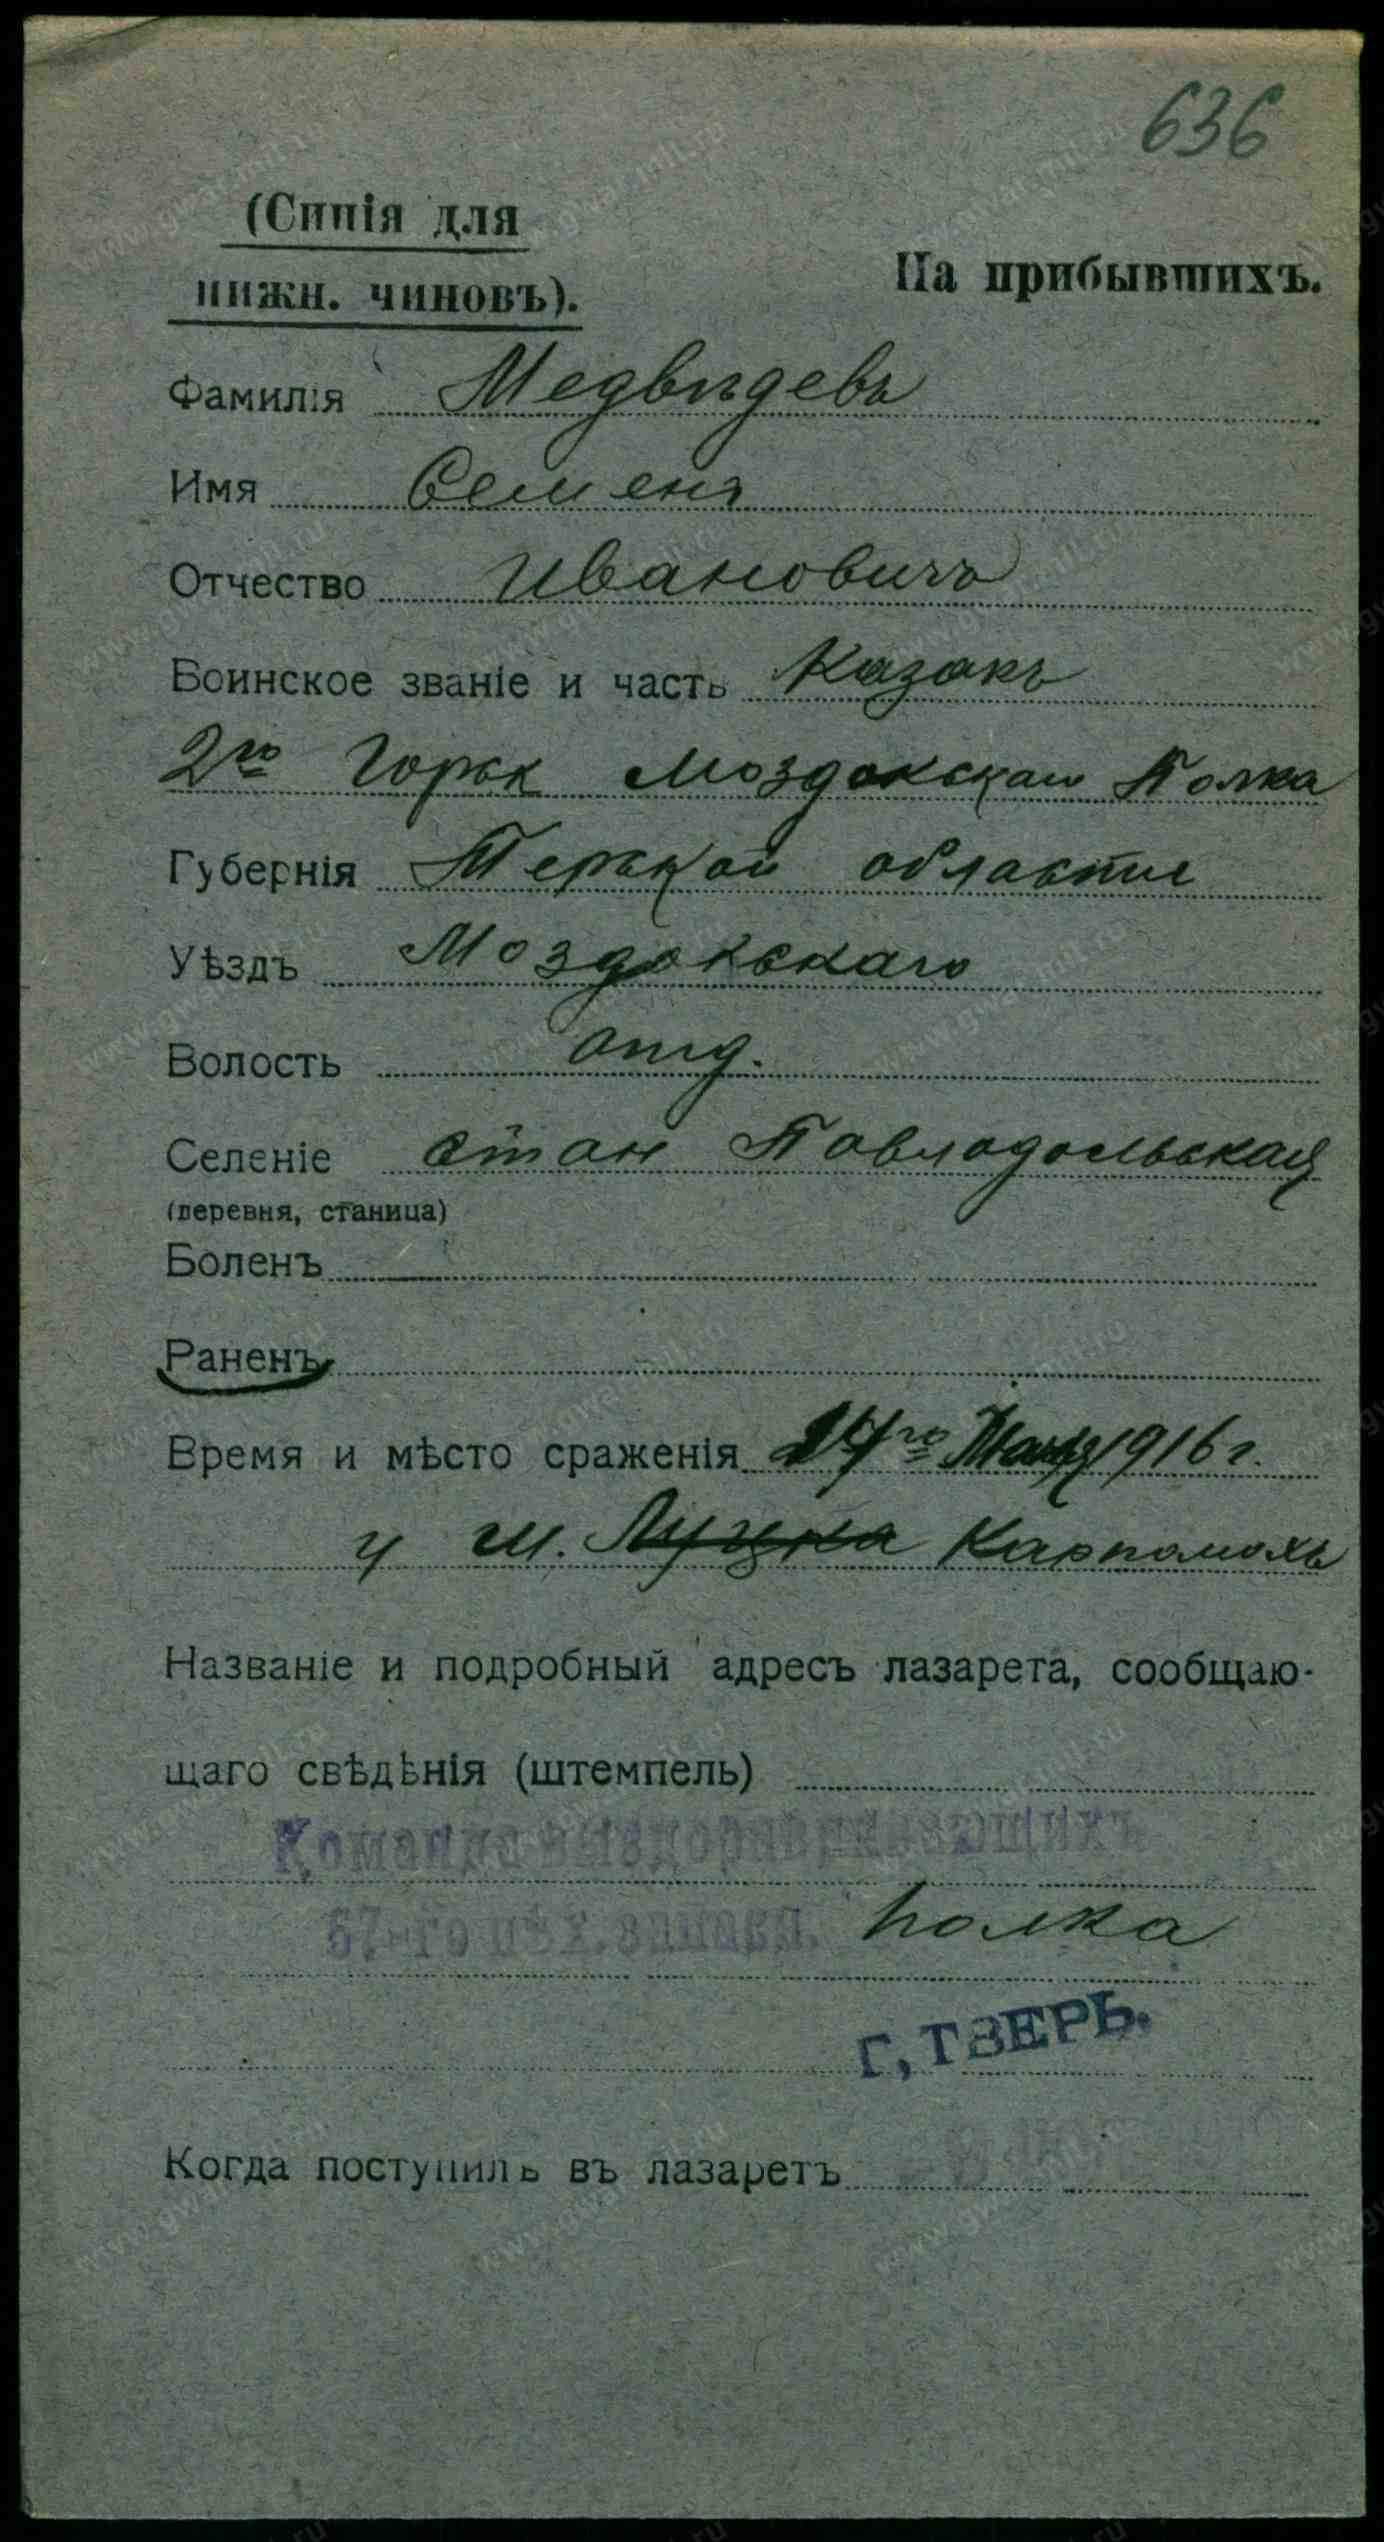 636
(Синія для
нижн. чиновъ).
На прибывшихъ.
Фамилія Медвѣдевъ
Имя Семенъ
Отчество Ивановичъ
Воинское званіе и часть Казакъ
2го Горск Моздокскаго Полка
Губернія Терской области
Уѣздъ Моздокскаго
Волость отд.
Селеніе стан Павлодольская
(деревня, станица)
Боленъ
Раненъ
Время и мѣсто сраженія 1916 г.
у м. Луцка
Названіе и подробный адресъ лазарета, сообщаю-
щаго свѣдѣнія (штемпель)
Команда выздоравливающихъ
57-го пѣх. запасн. полка
Г, ТВЕРЬ.
Когда поступилъ въ лазаретъ